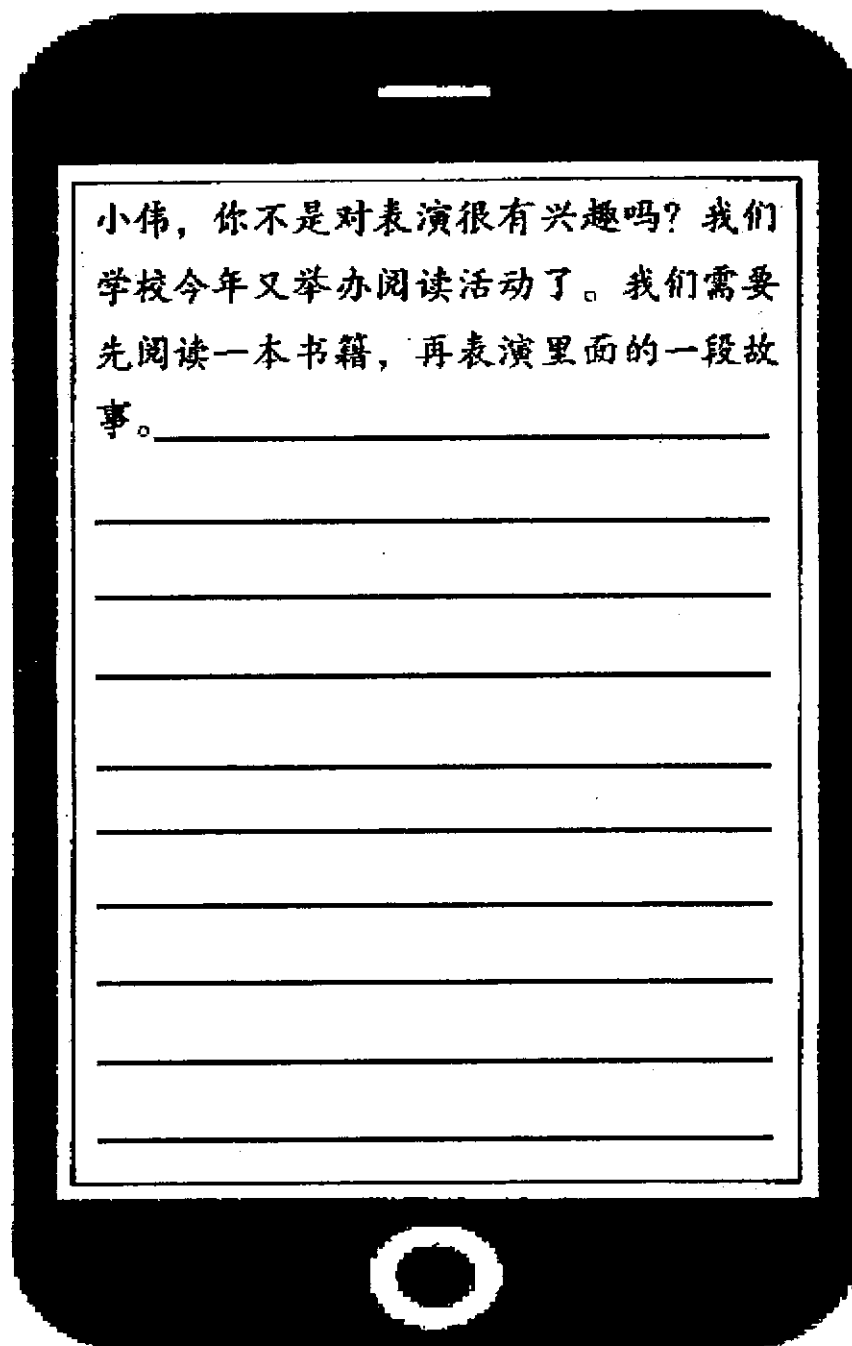 小伟，你不是对表演很有兴趣吗？我们
学校今年又举办阅读活动了。我们需要
先阅读一本书籍，再表演里面的一段故
事。